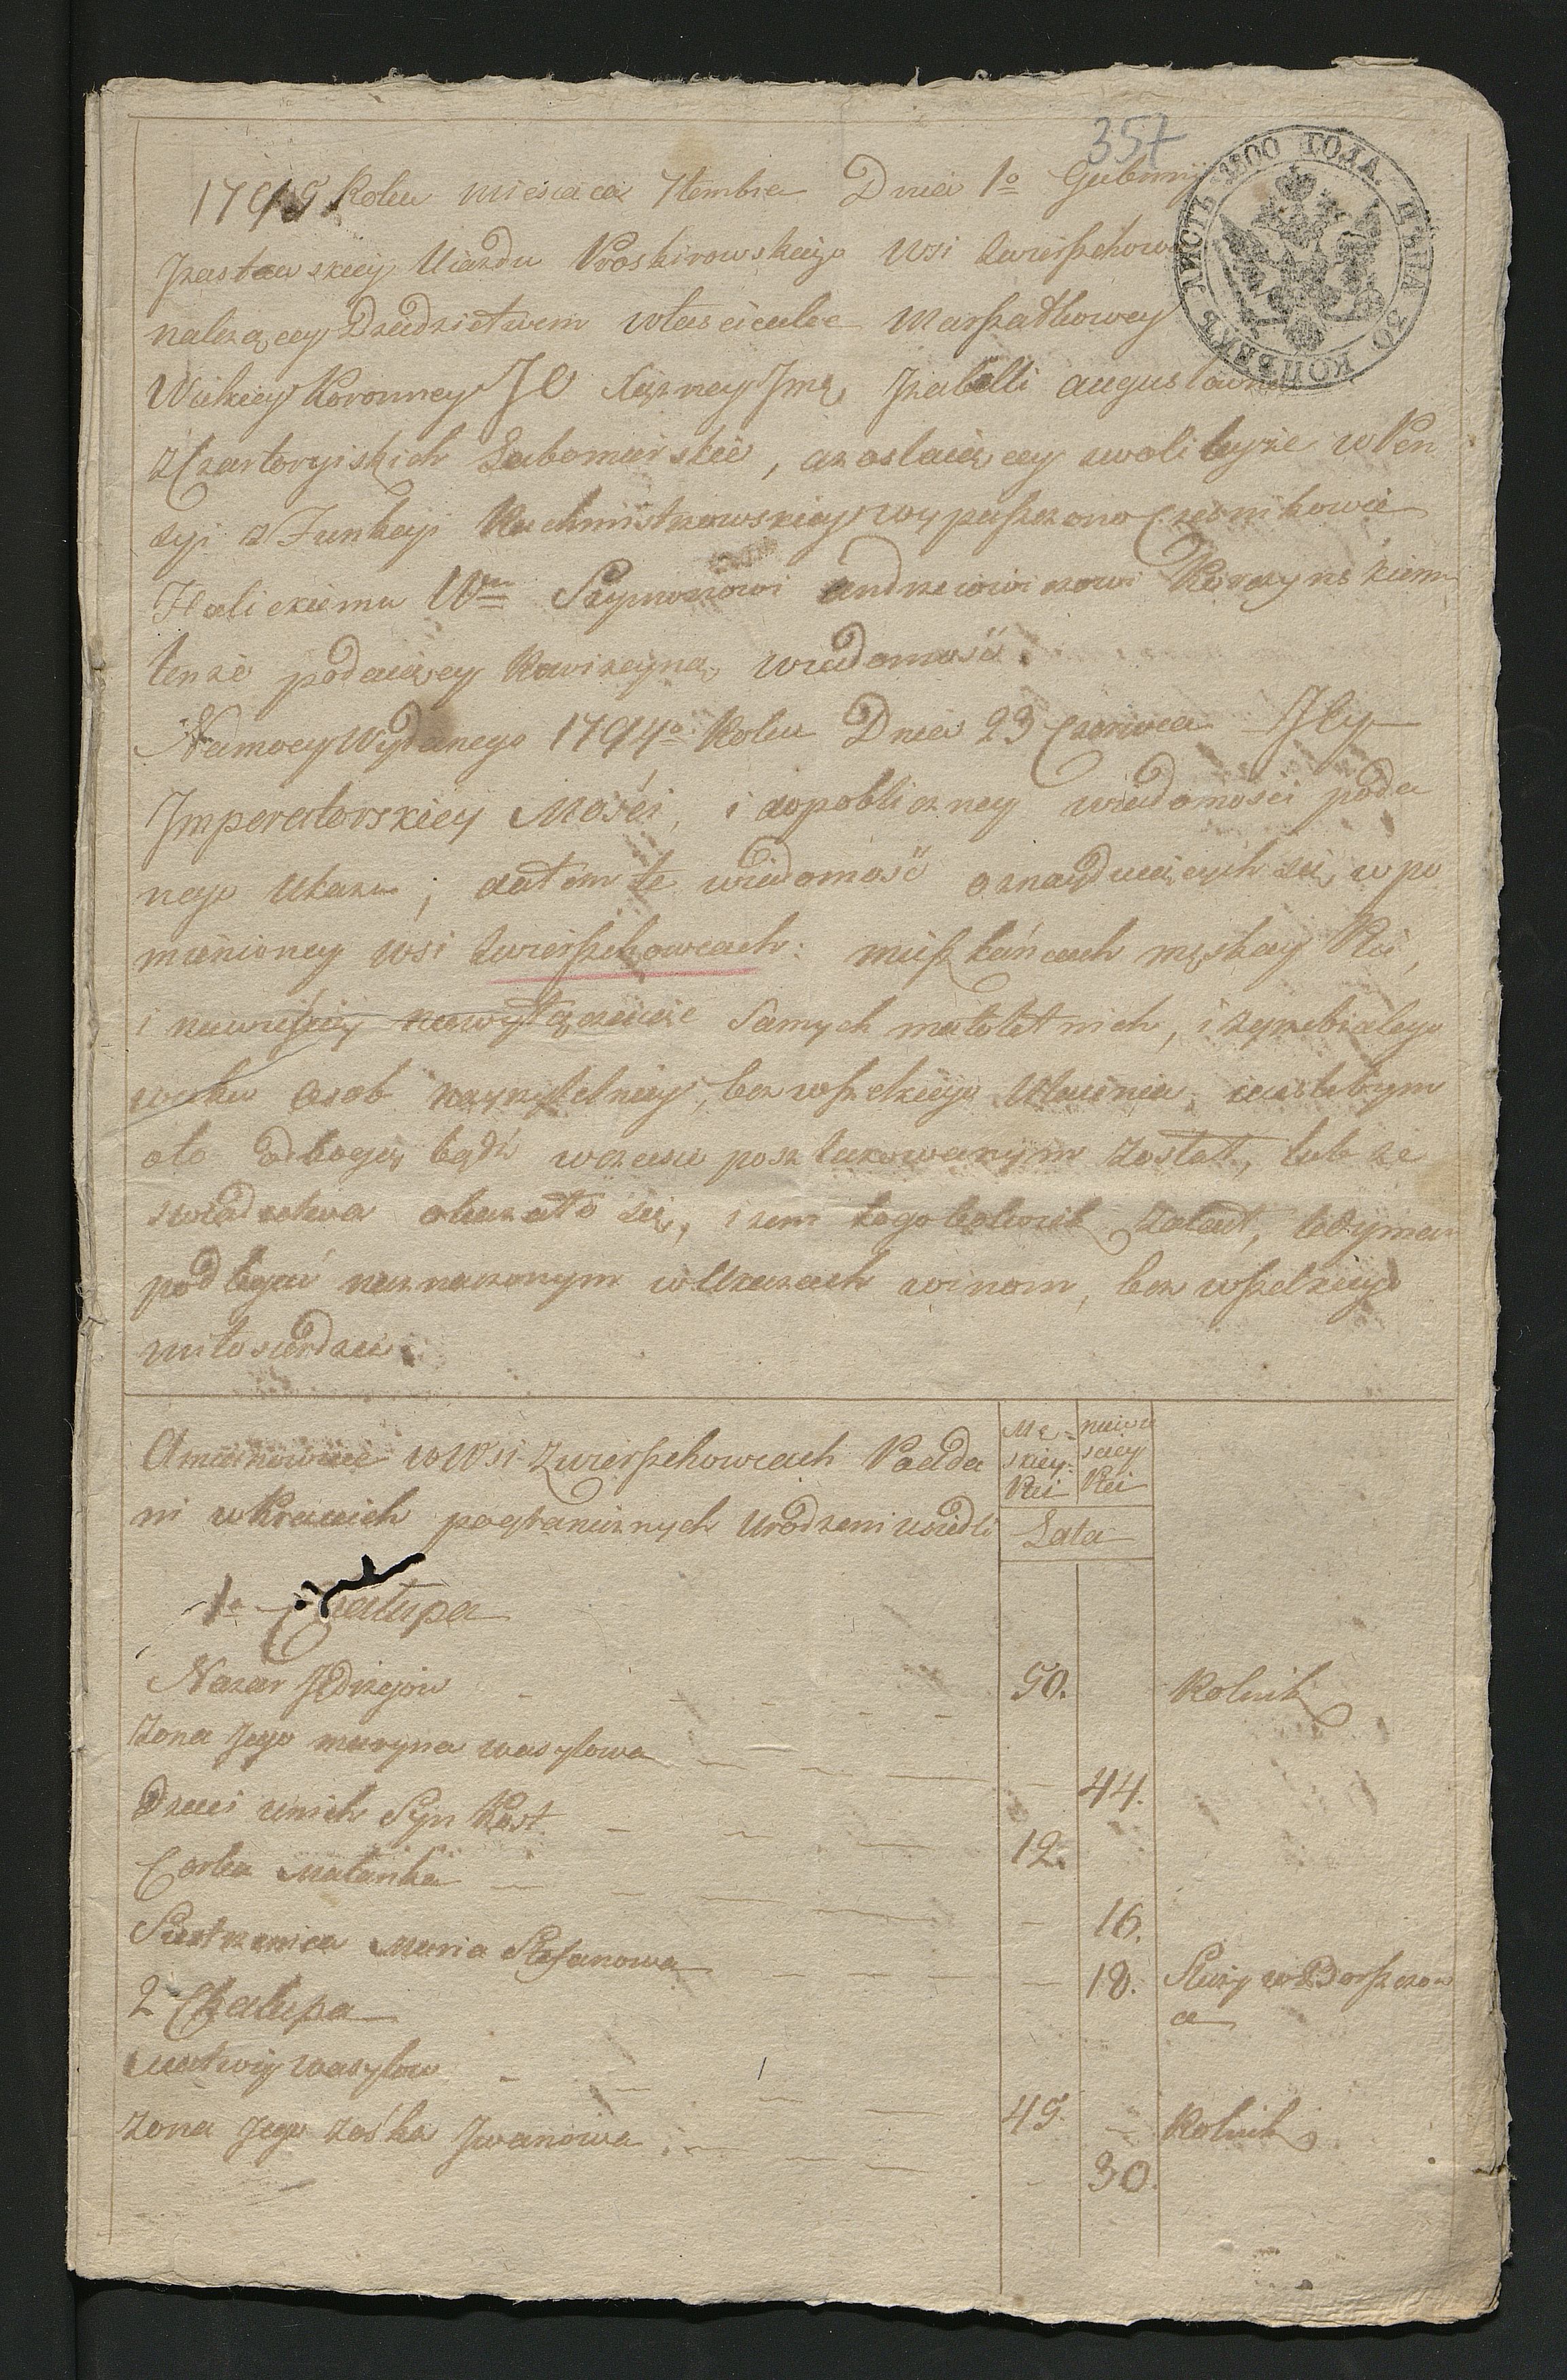 357
ЛИСТЪ 1800 ГОДА. ЦѢНА 30 КОПѢЕКЪ
1795 Roku miesiąca 7tembra Dnia 1o Gubernij
Izasławskiey Uiazdu Proskirowskiego Wsi Zwierszchowc
należącey Dziedzictwem własciciclce Marszałkowey
Wielkiey Koronney JO Xiężney Jmę Izabelli augustowny
z Czartoryiskich Lubomirskie, azostaiącey zwoli teyże w Pen
syi z Funkcyi Rachmistrzowskiey wypuszczono Czesnikowie
Halickiemu Wmu Szymonowi andrzeiowiczowi Korczynskiemu
tenże podaiącey Rewizcyiną wiadomość.
Namocy Wydanego 1794o Roku Dnia 23 Czerwca Jey
Imperatorskiey Mości, i dopobliczney wiadomości poda
nego Ukazu; dałom te wiadomość oznayduiących się w po
mienioney wsi Zwierszchowcach: mieszkańcach męskiey Płci,
i niewieściey niewyłączaiąc Samych małoletnich, i zgrzebiałego
wieku osob rzyrzetelniey, bez wszelkiego Utaienia, ieslibym
oto Odkogo bądź wczasie poszlakowanym został, lub ze
swiadectwa okazało się, iżem kogokolwiek Zataił, tedy mam
podlegać naznaczonym w Ukazach winom, bez wszelkiego
miłosierdzia.
Amianowicie w Wsi Zwierszchowcach Podda
ni w Kraiich pogranicznych Urodzeni i osiedli
Mę-
skiey
Płci
niewie
sciey
Płci
Lata
1a Chałupa
Nazar Jędrzejow 50. Rolnik
Zona Jego maryna wasylowa 44.
Dzieci unich Syn Kost 12.
Corka Małanka 16.
Siestrzenica Maria Stefanowa 18. Służy w Dorszczow
ce
2 Chałupa
Matwiy wasylow 45. Rolnik
Zona Jego Zośka Iwanowa 30.